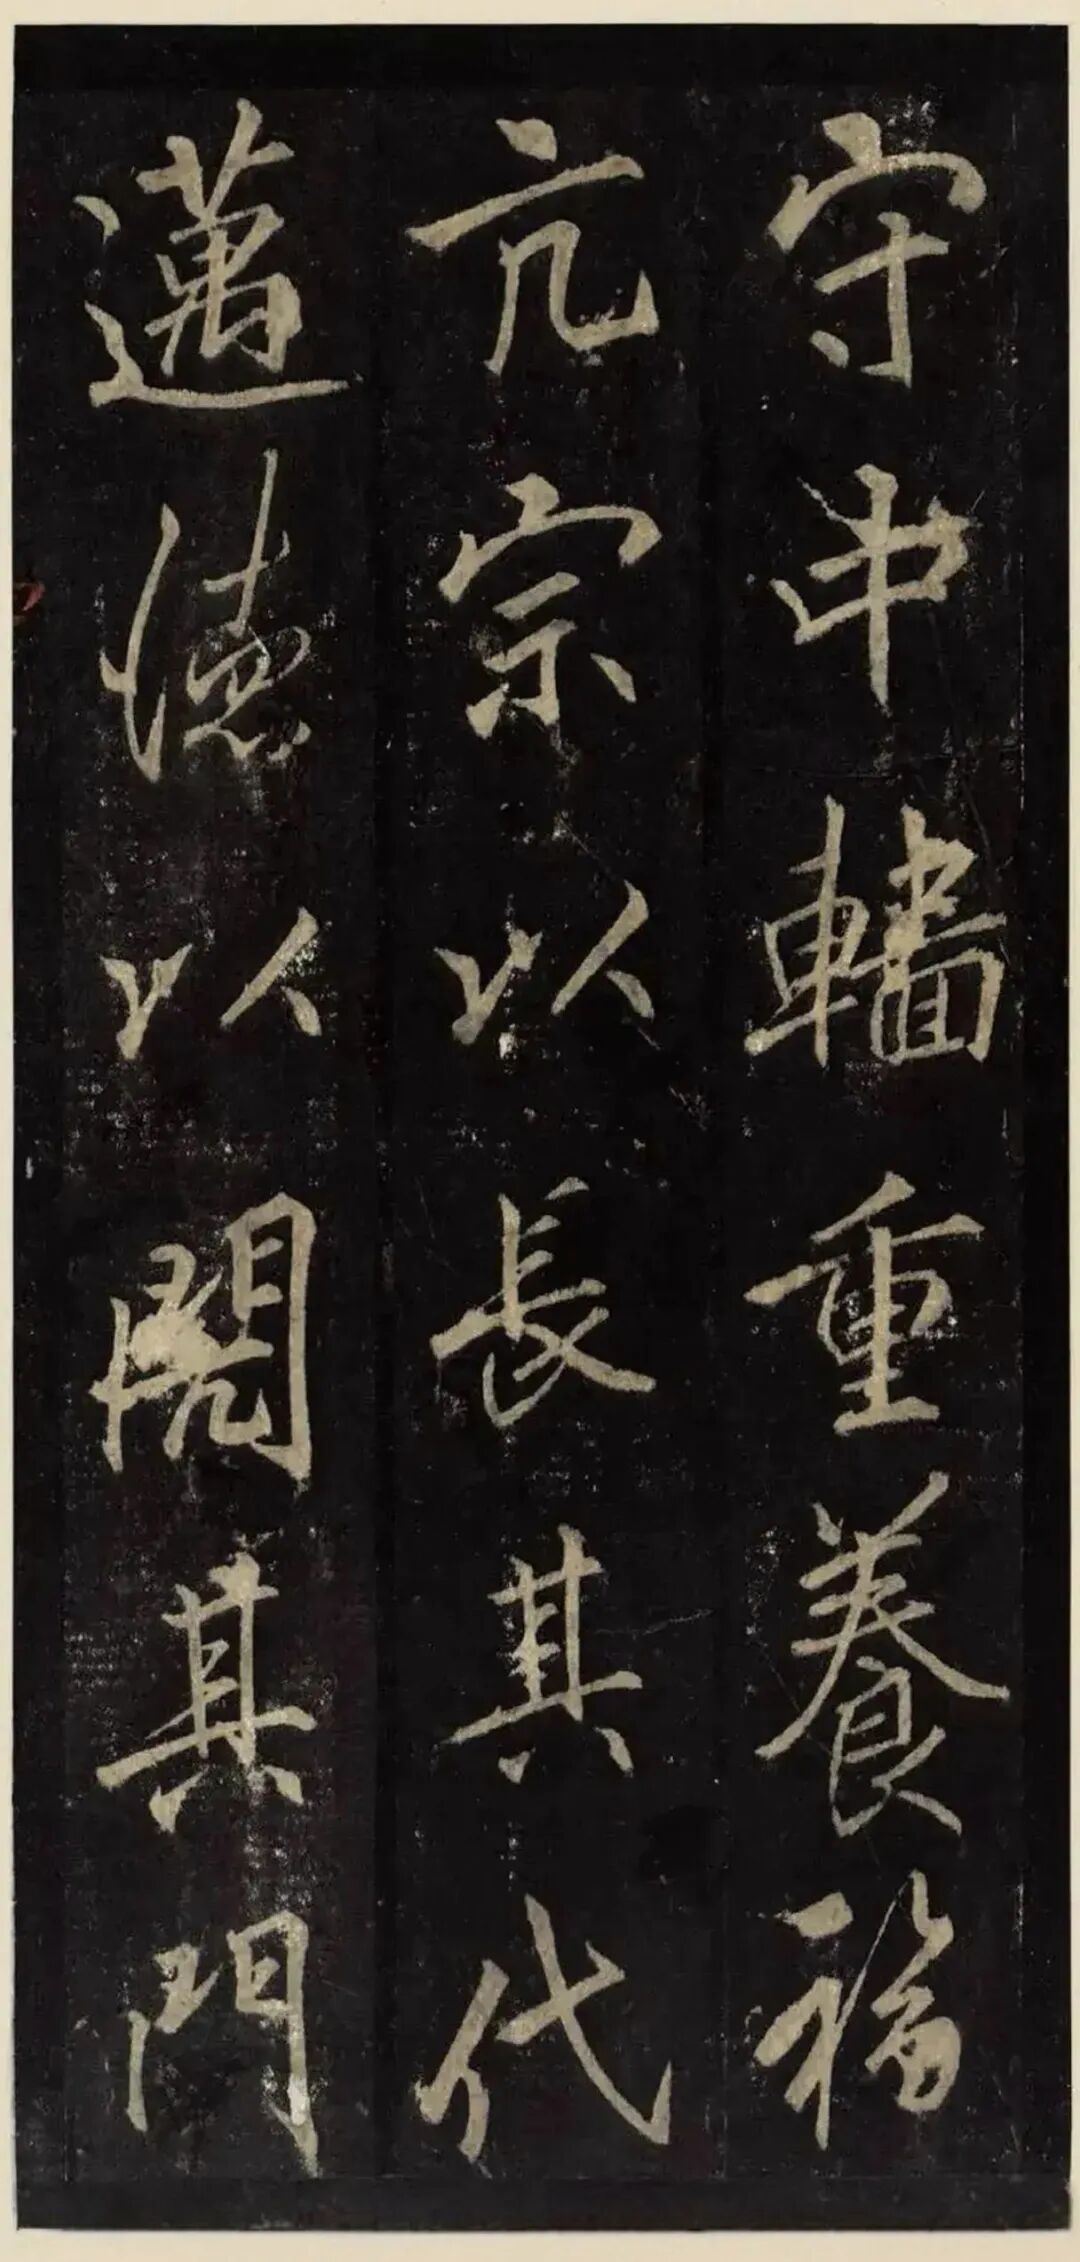 守中輜重養福
亢宗以長其代
邁德以閌其門